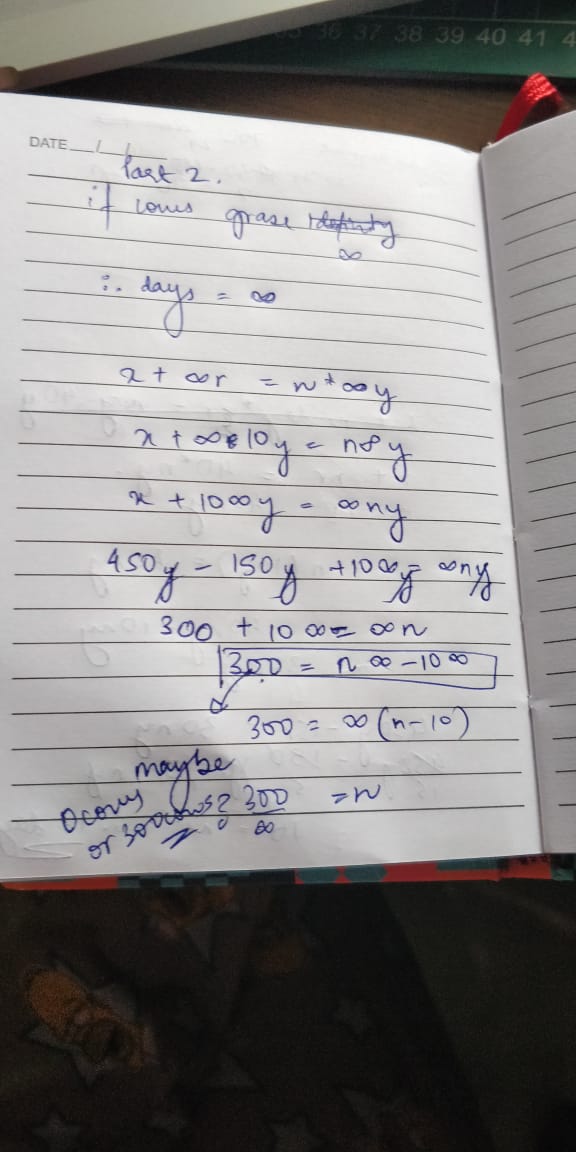 36 37 38 39 40 41 4
DATE / /
Part 2.
if cows graze ∞
∴ days = ∞
x + ∞r = n * ∞y
x + ∞ 10y = n∞y
x + 10∞y = ∞ny
450y - 150y + 10∞y = ∞ny
300 + 10∞ = ∞n
300 = n∞ - 10∞
300 = ∞(n-10)
maybe
0 cows
or 300 cows? 300/∞ = n